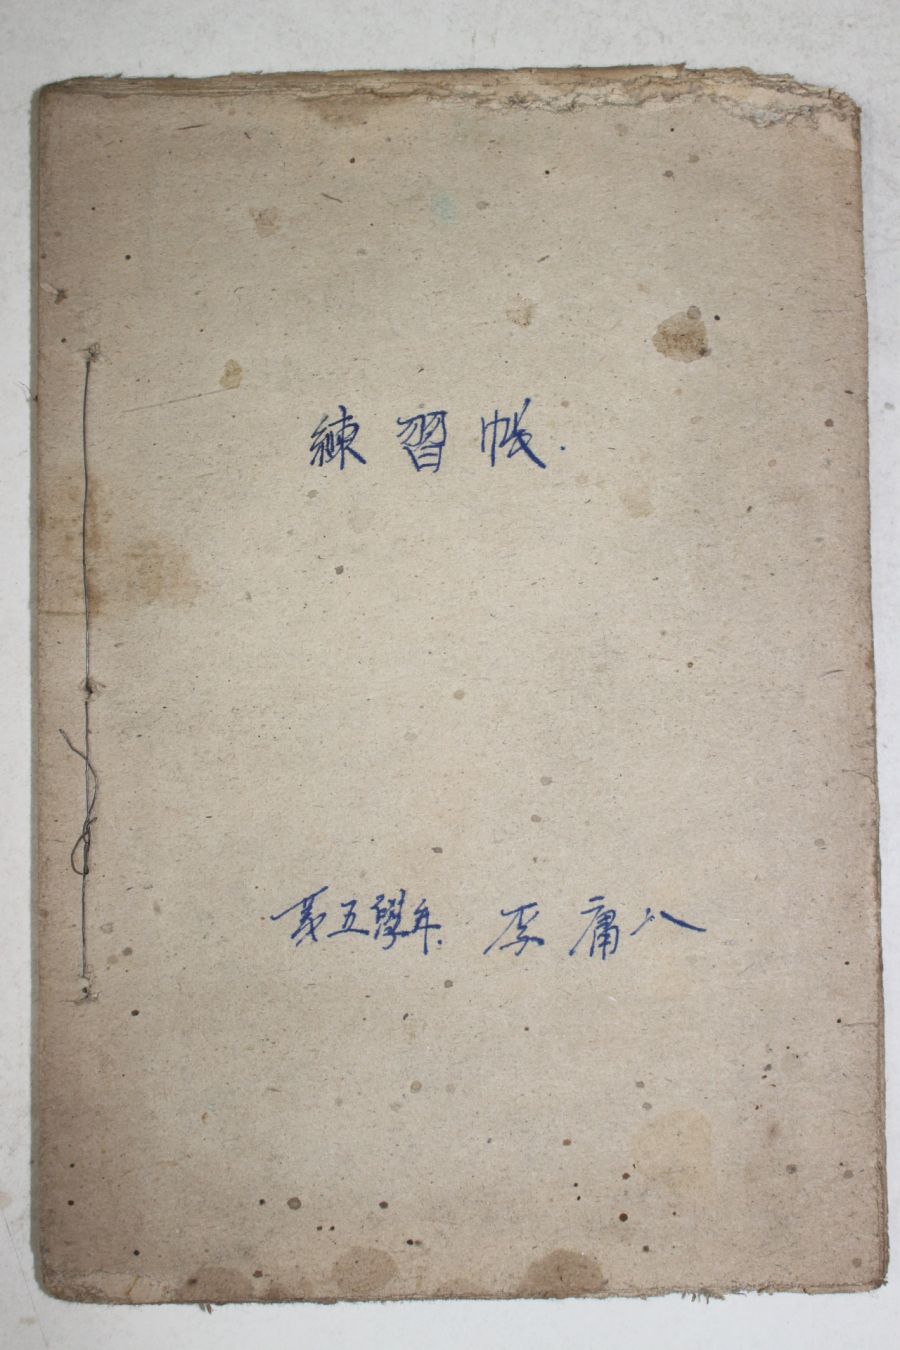 練習帳.
第五學年. 李庸八